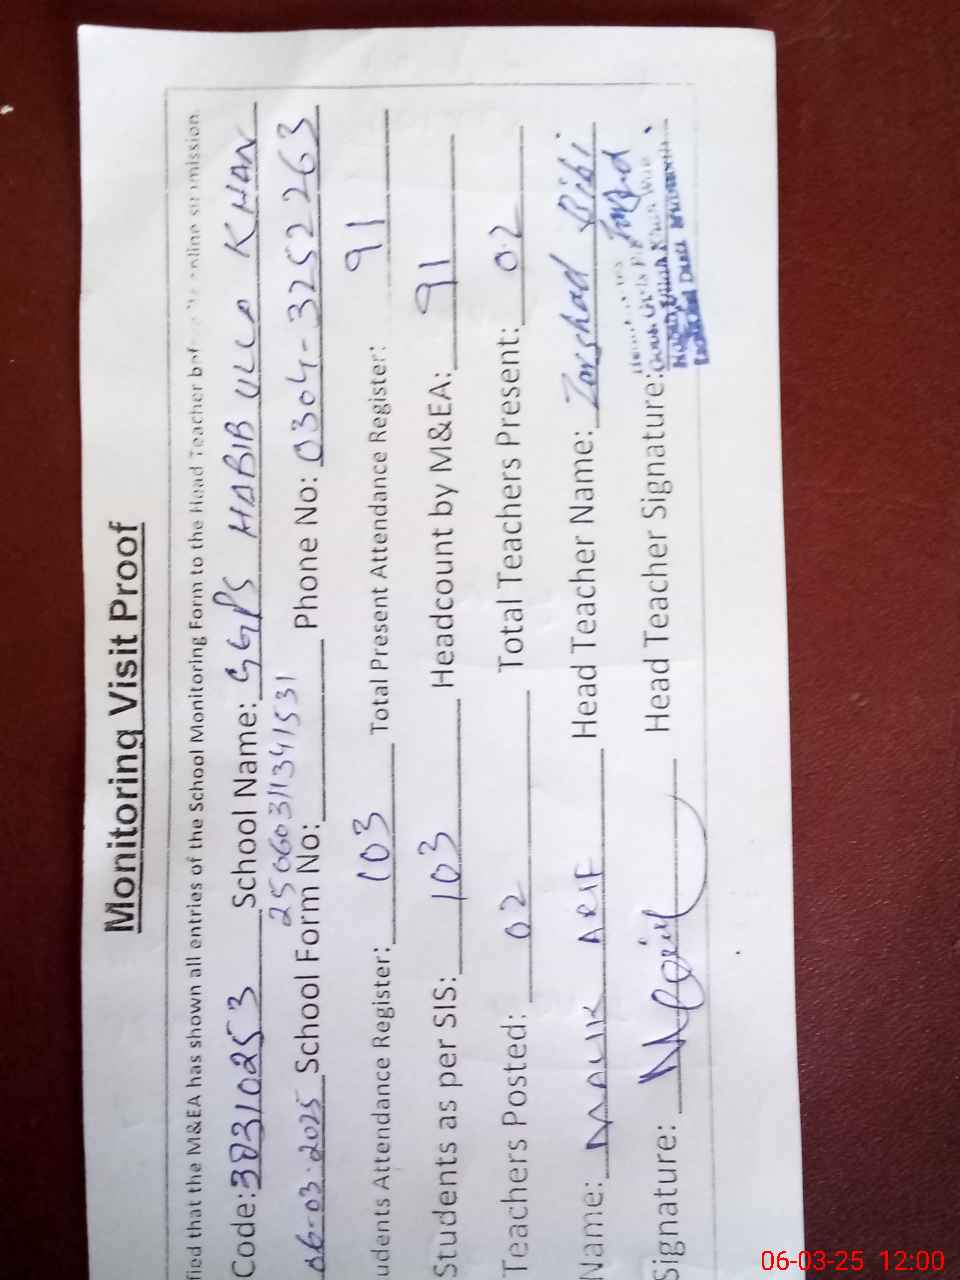 Monitoring Visit Proof
fied that the M&EA has shown all entries of the School Monitoring Form to the Head Teacher before online submission.
Code: 38310253 School Name: GGPS HABIB ULLA KHAN
25060311341531
06-03-2025 School Form No: Phone No: 0304-3252263
udents Attendance Register: 103 Total Present Attendance Register: 91
Students as per SIS: 103 Headcount by M&EA: 91
Teachers Posted: 02 Total Teachers Present: 02
Name: MALIK ARIF Head Teacher Name: Zarshad Bibi
Signature: Head Teacher Signature:
06-03-25 12:00